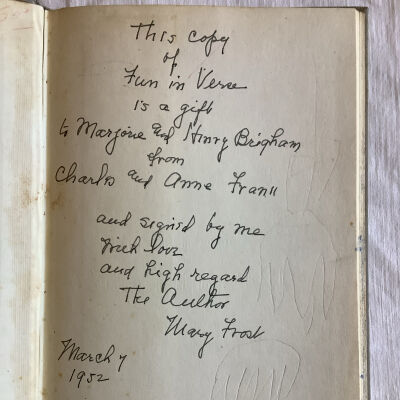 This copy
of
Fun in Verse
is a gift
to Marjorie and Henry Brigham
from
Charles and Anne
and signed by me
with love
and high regard
The Author
Mary Frost
March 7
1952